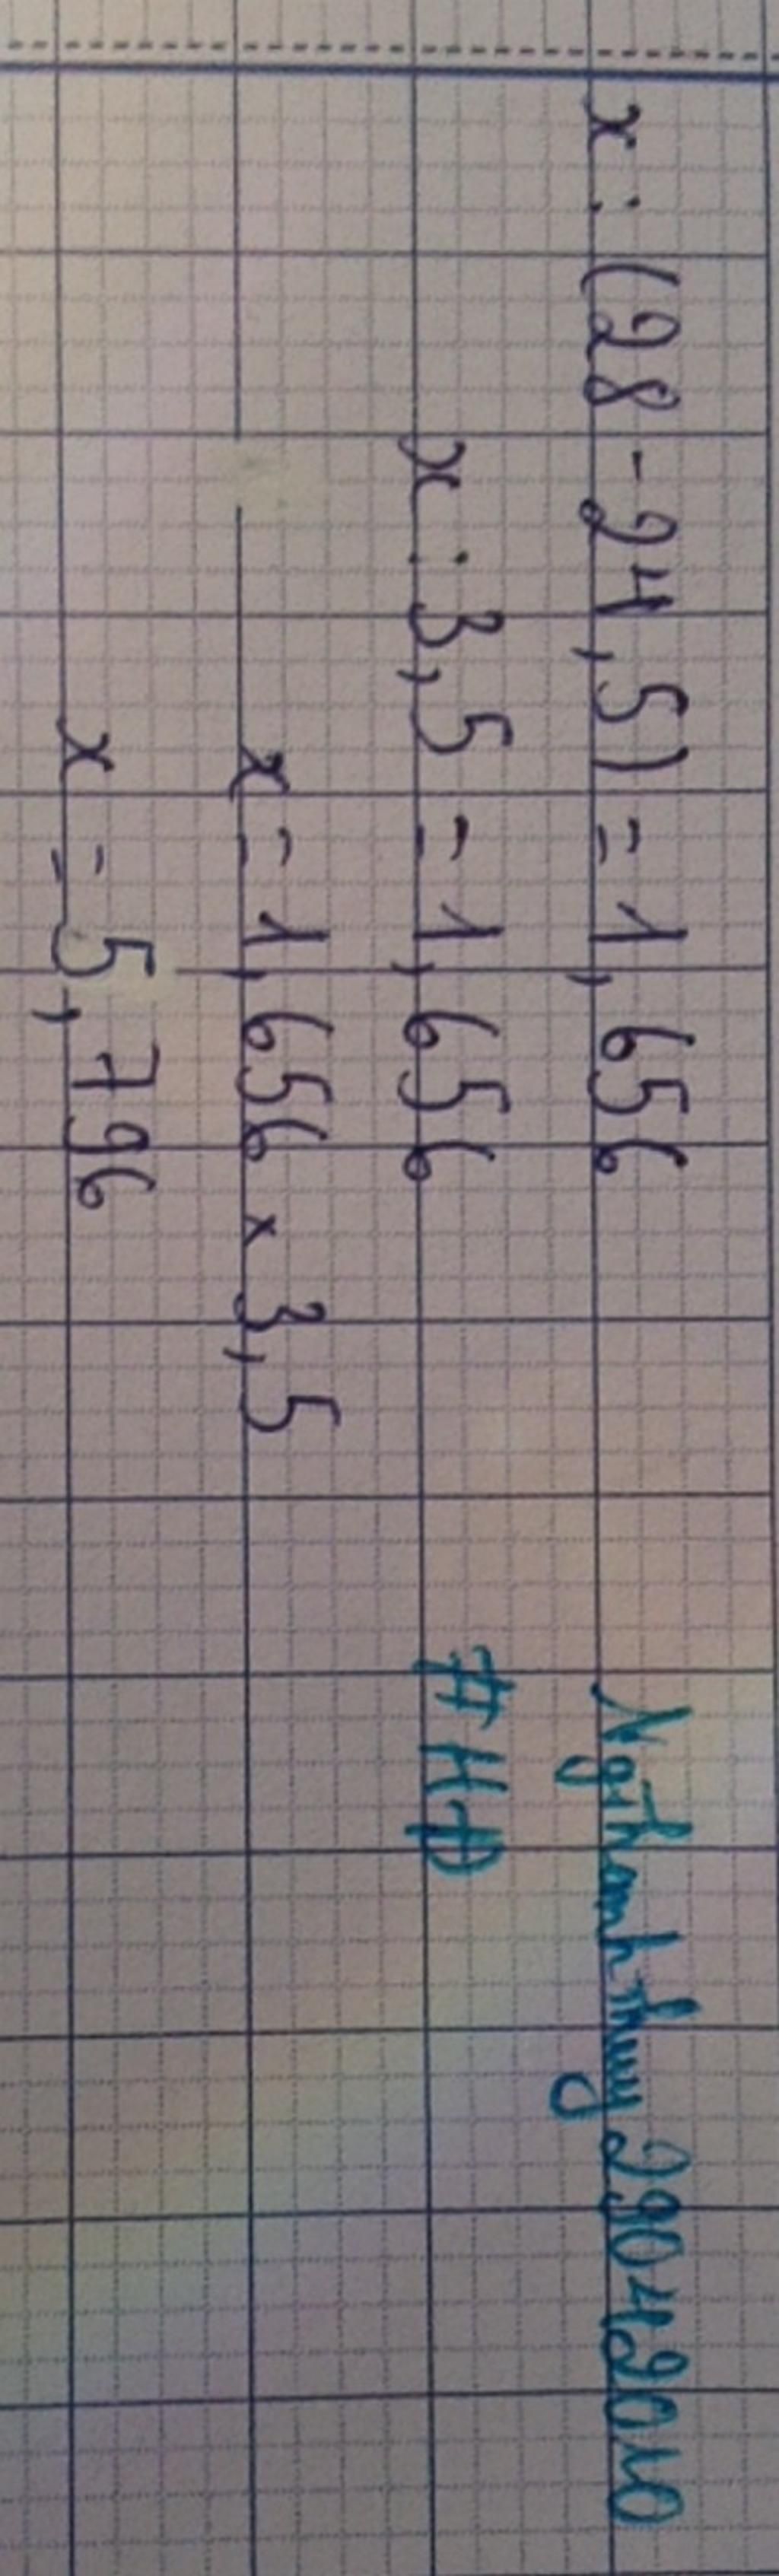 x : (28 - 24,5) = 1,656
x : 3,5 = 1,656
x = 1,656 x 3,5
x = 5,796
Ngthanhthuy29042010
#HĐ